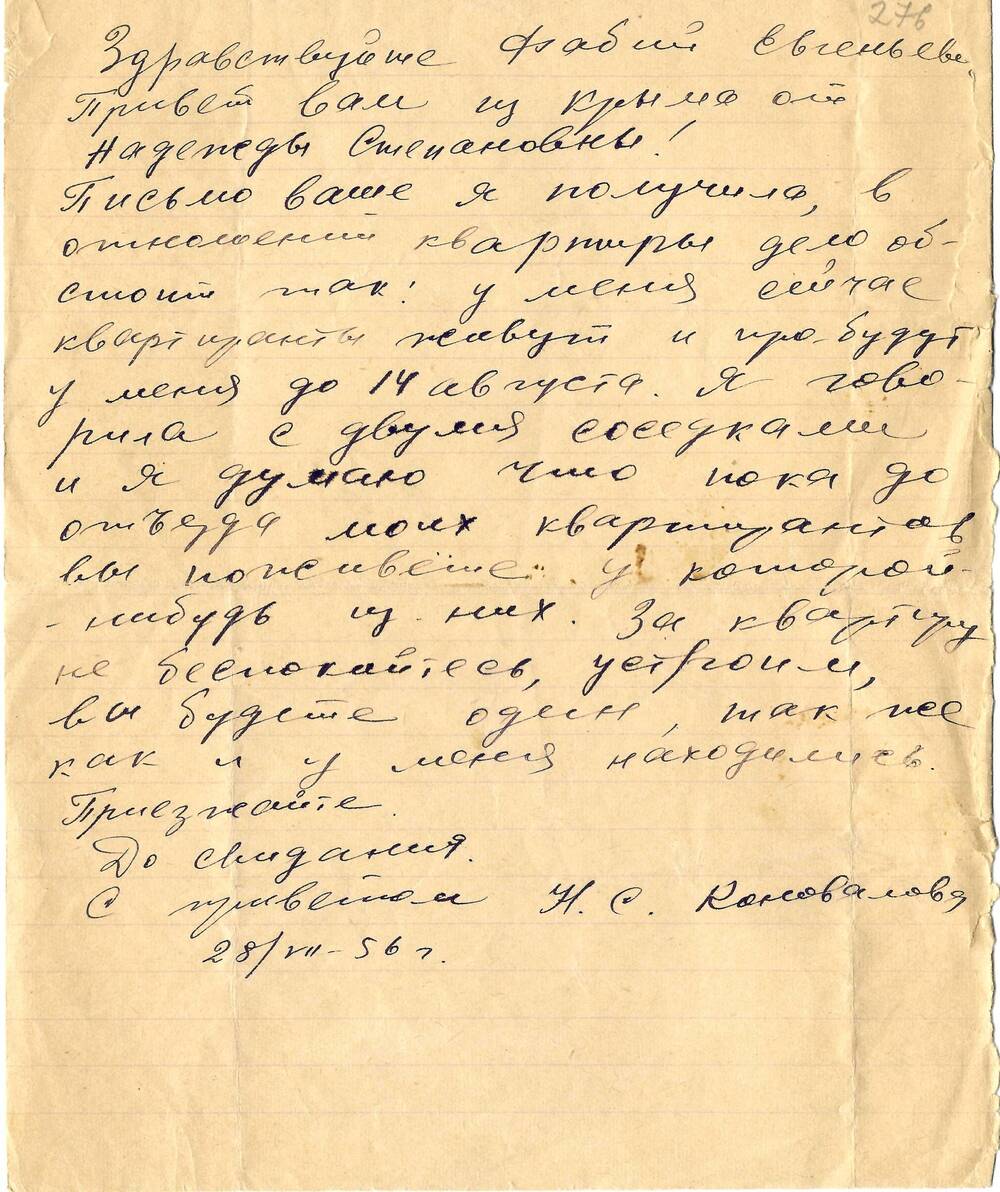 276
Здравствуйте Фабий Евгеньеви
Привет вам из крыма от
Надежды Степановны!
Письмо ваше я получила, в
отношений квартиры дело об-
стоит так: у меня сейчас
квартиранты живут и про-будут
у меня до 14 августа. Я гово-
рила с двумя соседками
и я думаю что пока до
отъезда моих квартирантов
вы поживёте у которой-
-нибудь из них. За квартиру
не беспокойтесь, устроим,
вы будете один, так же
как и у меня находились.
Приезжайте.
До свидания.
С приветом Н. С. Коновалова
28/VII-56 г.